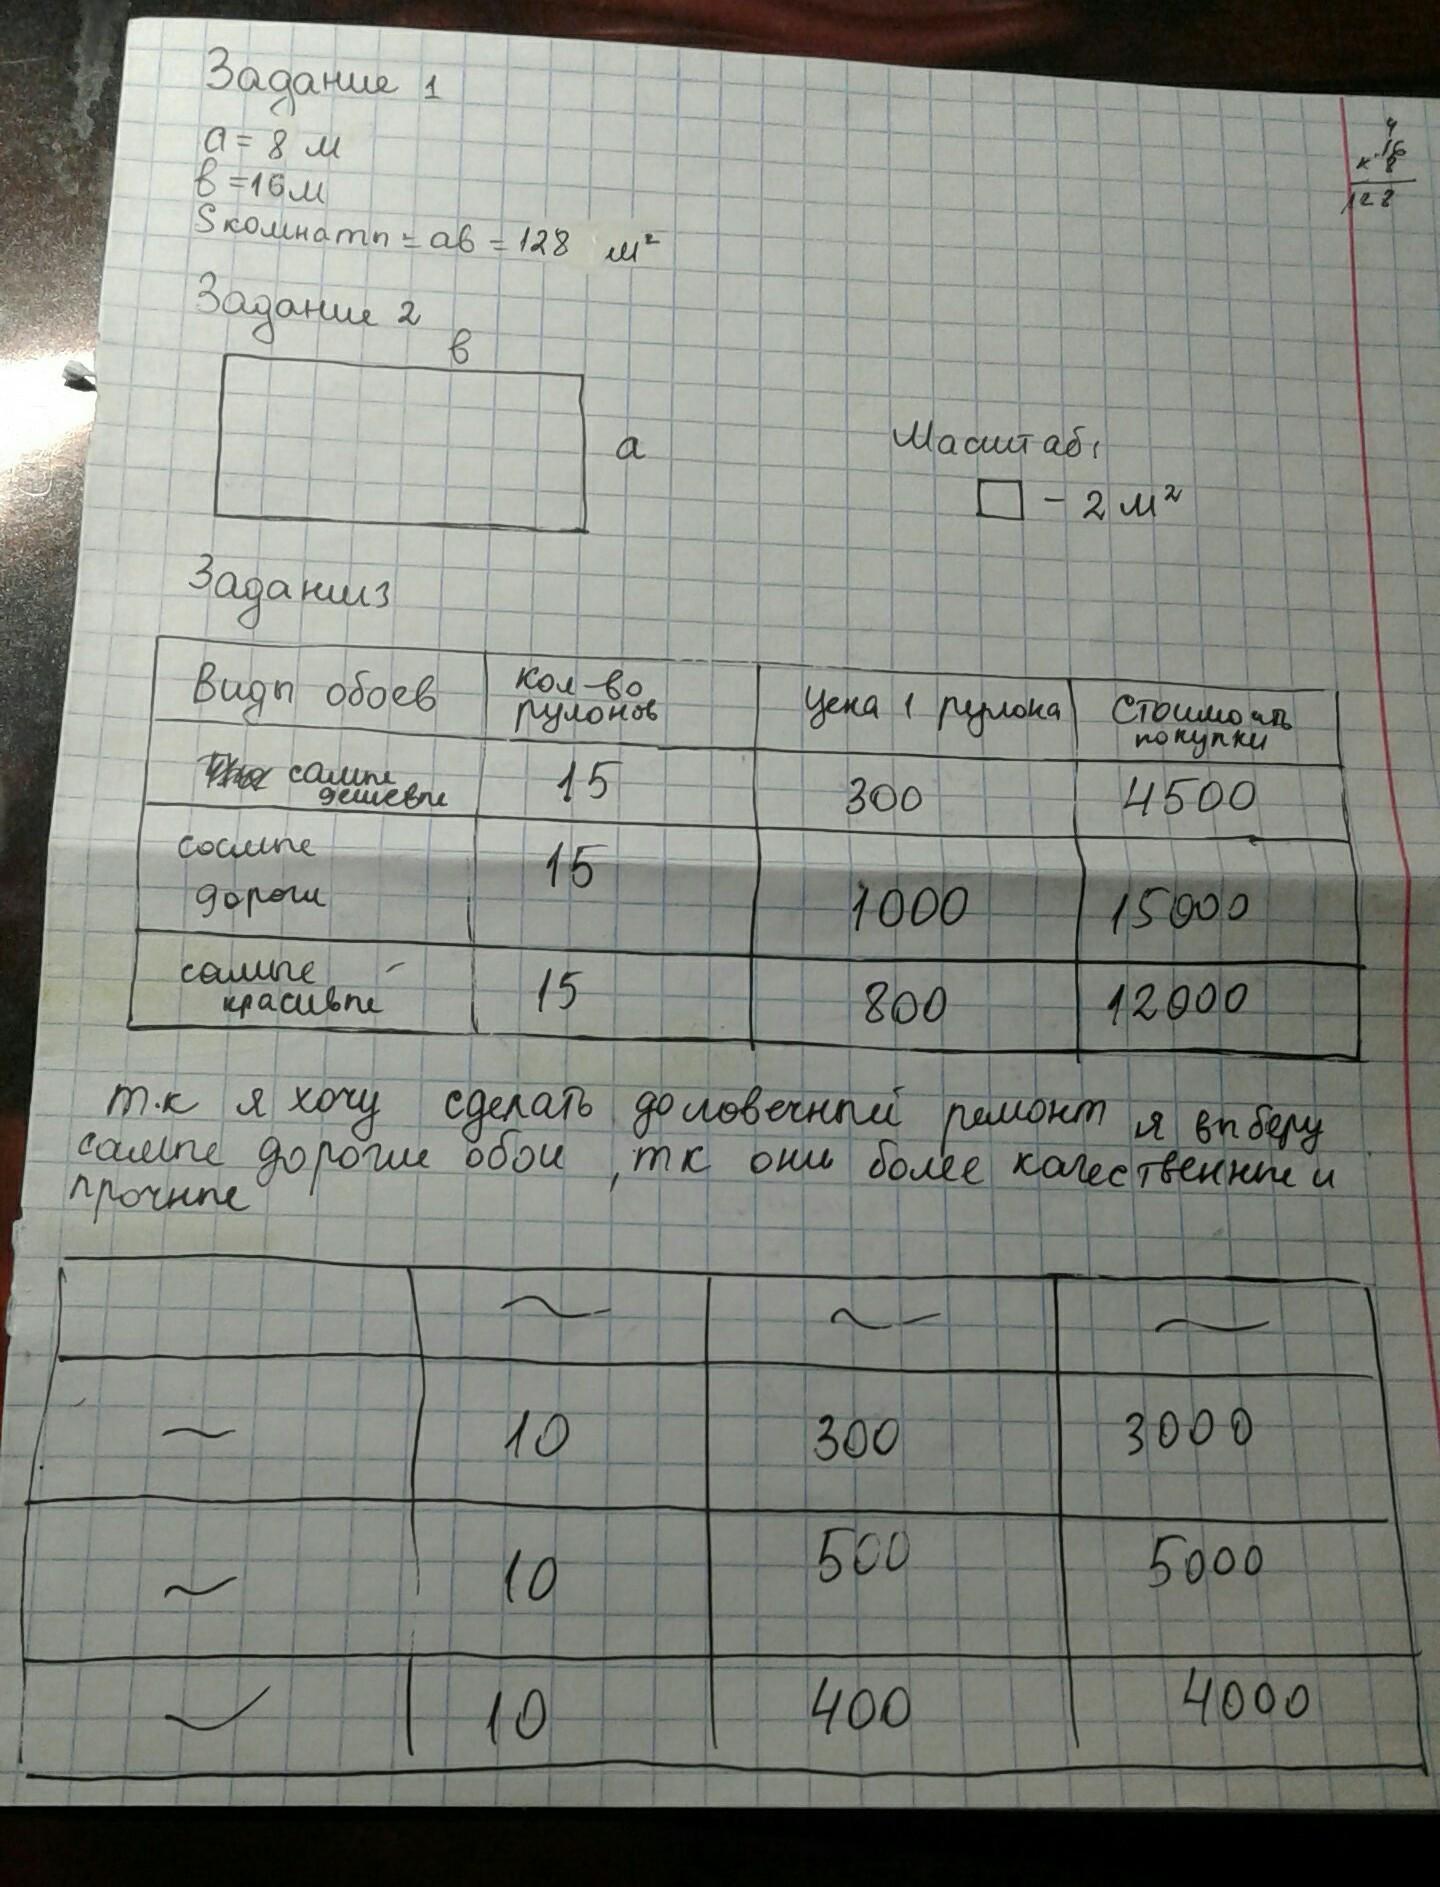 Задание 1
а = 8 м
в = 16 м
S комнаты = ав = 128 м²
4
16
× 8
128
Задание 2
в
а
Масштаб:
□ – 2 м²
Задание 3
Виды обоев | Кол-во рулонов | Цена 1 рулона | Стоимость покупки
самые дешевые | 15 | 300 | 4500
соамые дороги | 15 | 1000 | 15000
самые красивые | 15 | 800 | 12000
т.к я хочу сделать долговечный ремонт я выберу
самые дорогие обои, тк они более качественные и
прочные
~ | ~ | ~
~ | 10 | 300 | 3000
~ | 10 | 500 | 5000
~ | 10 | 400 | 4000